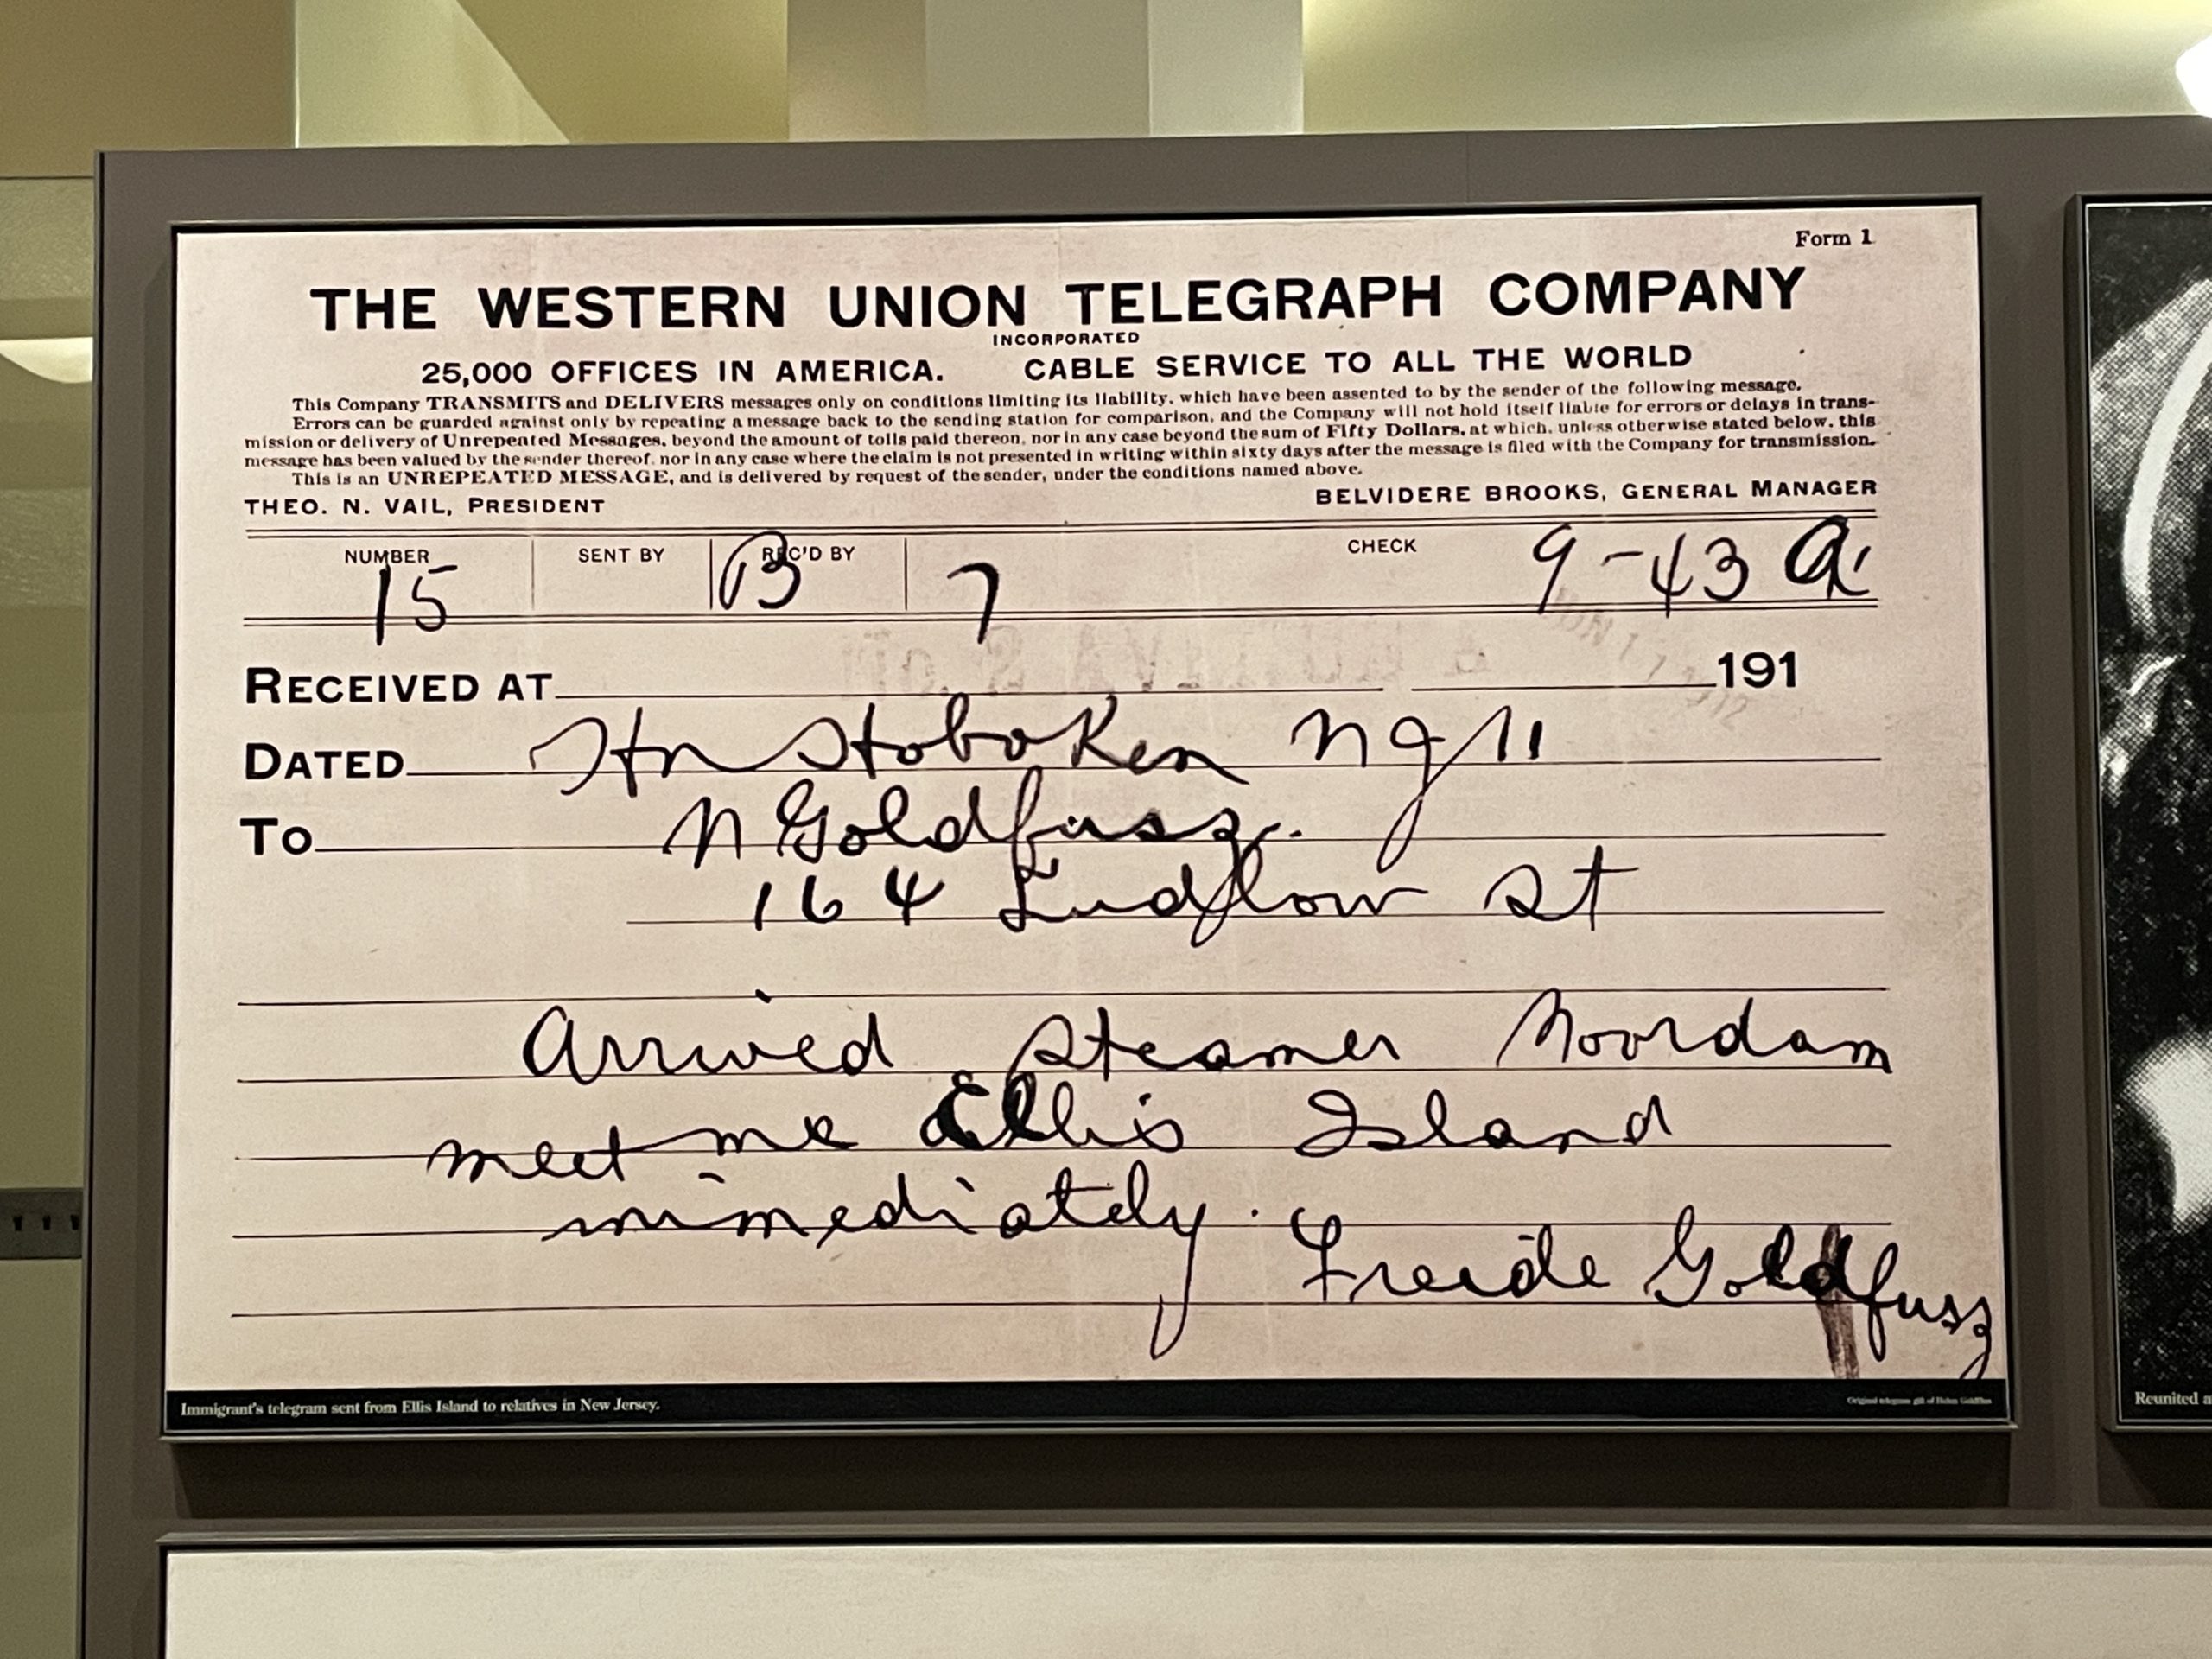 Form 1
THE WESTERN UNION TELEGRAPH COMPANY
INCORPORATED
25,000 OFFICES IN AMERICA. CABLE SERVICE TO ALL THE WORLD
This Company TRANSMITS and DELIVERS messages only on conditions limiting its liability, which have been assented to by the sender of the following message.
Errors can be guarded against only by repeating a message back to the sending station for comparison, and the Company will not hold itself liable for errors or delays in trans-
mission or delivery of Unrepeated Messages, beyond the amount of tolls paid thereon, nor in any case beyond the sum of Fifty Dollars, at which, unless otherwise stated below, this
message has been valued by the sender thereof, nor in any case where the claim is not presented in writing within sixty days after the message is filed with the Company for transmission.
This is an UNREPEATED MESSAGE, and is delivered by request of the sender, under the conditions named above.
THEO. N. VAIL, PRESIDENT BELVIDERE BROOKS, GENERAL MANAGER
NUMBER SENT BY REC'D BY CHECK
15 B 7 9-43 a
RECEIVED AT 191
DATED Hoboken NJ 11
To N Goldfusz.
164 Ludlow St
Arrived Steamer Noordam
meet me Ellis Island
immediately. Freide Goldfusz
Immigrant's telegram sent from Ellis Island to relatives in New Jersey.
Original telegram gift of Helen
Reunited